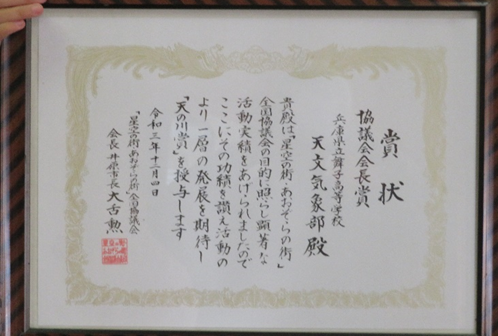 賞状
協議会会長賞
兵庫県立舞子高等学校
天文気象部殿
貴殿は「星空の街・あおぞらの街」
全国協議会の目的に照らし顕著な
活動実績をあげられましたので
ここにその功績を讃え活動の
より一層の発展を期待し
「天の川賞」を授与します
令和三年十一月四日
「星空の街・あおぞらの街」全国協議会
会長 井原市長 大舌勲